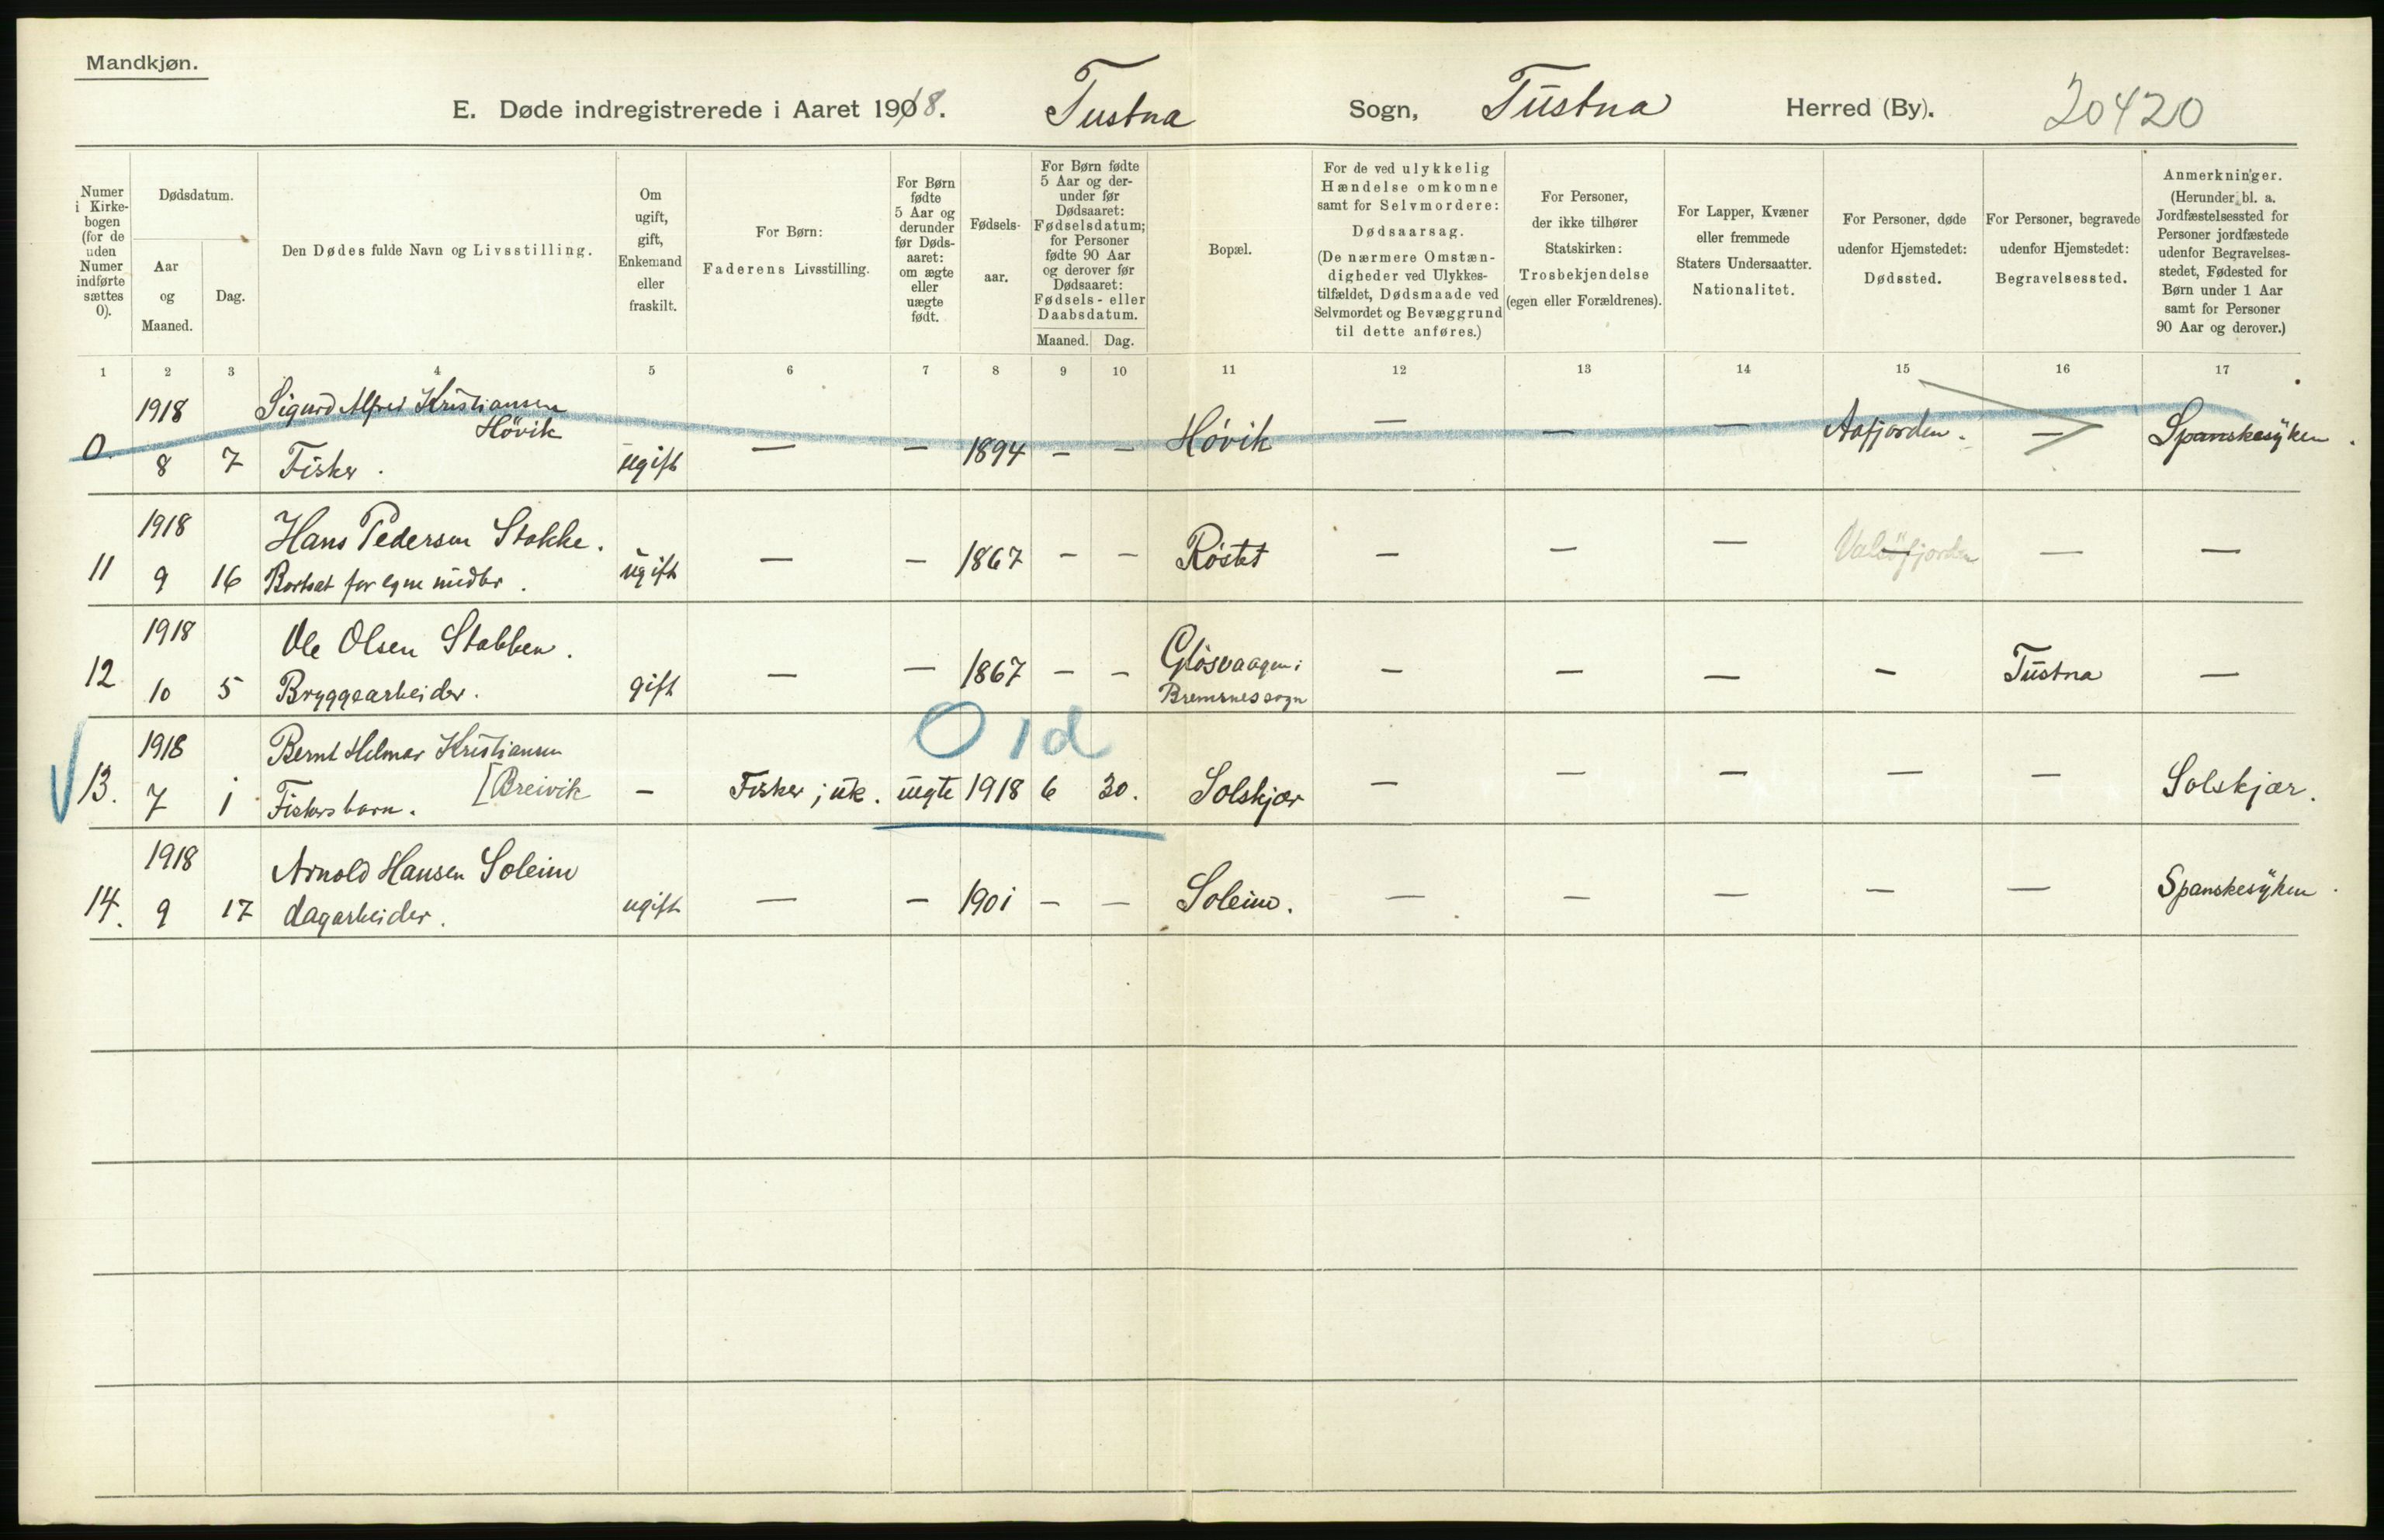 Mandkjøn.
E. Døde indregistrerede i Aaret 1918. Tustna Sogn, Tustna Herred (By). 20420
Numer i Kirkebogen (for de uden Numer indførte sættes 0).
Dødsdatum.
Aar og Maaned.
Dag.
Den Dødes fulde Navn og Livsstilling.
Om ugift, gift, Enkemand eller fraskilt.
For Børn: Faderens Livsstilling.
For Børn fødte 5 Aar og derunder før Dødsaaret: om ægte eller uægte født.
Fødselsaar.
For Børn fødte 5 Aar og derunder før Dødsaaret: Fødselsdatum; for Personer fødte 90 Aar og derover før Dødsaaret: Fødsels- eller Daabsdatum.
Maaned. Dag.
Bopæl.
For de ved ulykkelig Hændelse omkomne samt for Selvmordere: Dødsaarsag. (De nærmere Omstændigheder ved Ulykkestilfældet, Dødsmaade ved Selvmordet og Bevæggrund til dette anføres.)
For Personer, der ikke tilhører Statskirken: Trosbekjendelse (egen eller Forældrenes).
For Lapper, Kvæner eller fremmede Staters Undersaatter. Nationalitet.
For Personer, døde udenfor Hjemstedet: Dødssted.
For Personer, begravede udenfor Hjemstedet: Begravelsessted.
Anmerkninger. (Herunder bl. a. Jordfæstelsessted for Personer jordfæstede udenfor Begravelsesstedet, Fødested for Børn under 1 Aar samt for Personer 90 Aar og derover.)
1 2 3 4 5 6 7 8 9 10 11 12 13 14 15 16 17
1918 Sigurd Alfred Kristiansen
Høvik
0. 8 7 Fisker. ugift — — 1894 — — Høvik — — — Aafjorden. — Spanskesÿken.
1918 Hans Pedersen Stokke.
11 9 16 Bortsat for egne midler. ugift — — 1867 — — Röstet — — — Valsöfjorden — —
1918 Ole Olsen Stabben.
12 10 5 Bryggearbeider. gift — — 1867 — — Glösvaagen i
Bremsnes sogn — — — — Tustna —
0 1 d
1918 Bernt Helmer Kristiansen
[Breivik
13. 7 1 Fiskersbarn. — Fisker; uk. uegte 1918 6 30. Solskjær — — — — — Solskjær.
1918 Arnold Hansen Soleim
14. 9 17 dagarbeider. ugift — — 1901 — — Soleim. — — — — — Spanskesÿken.